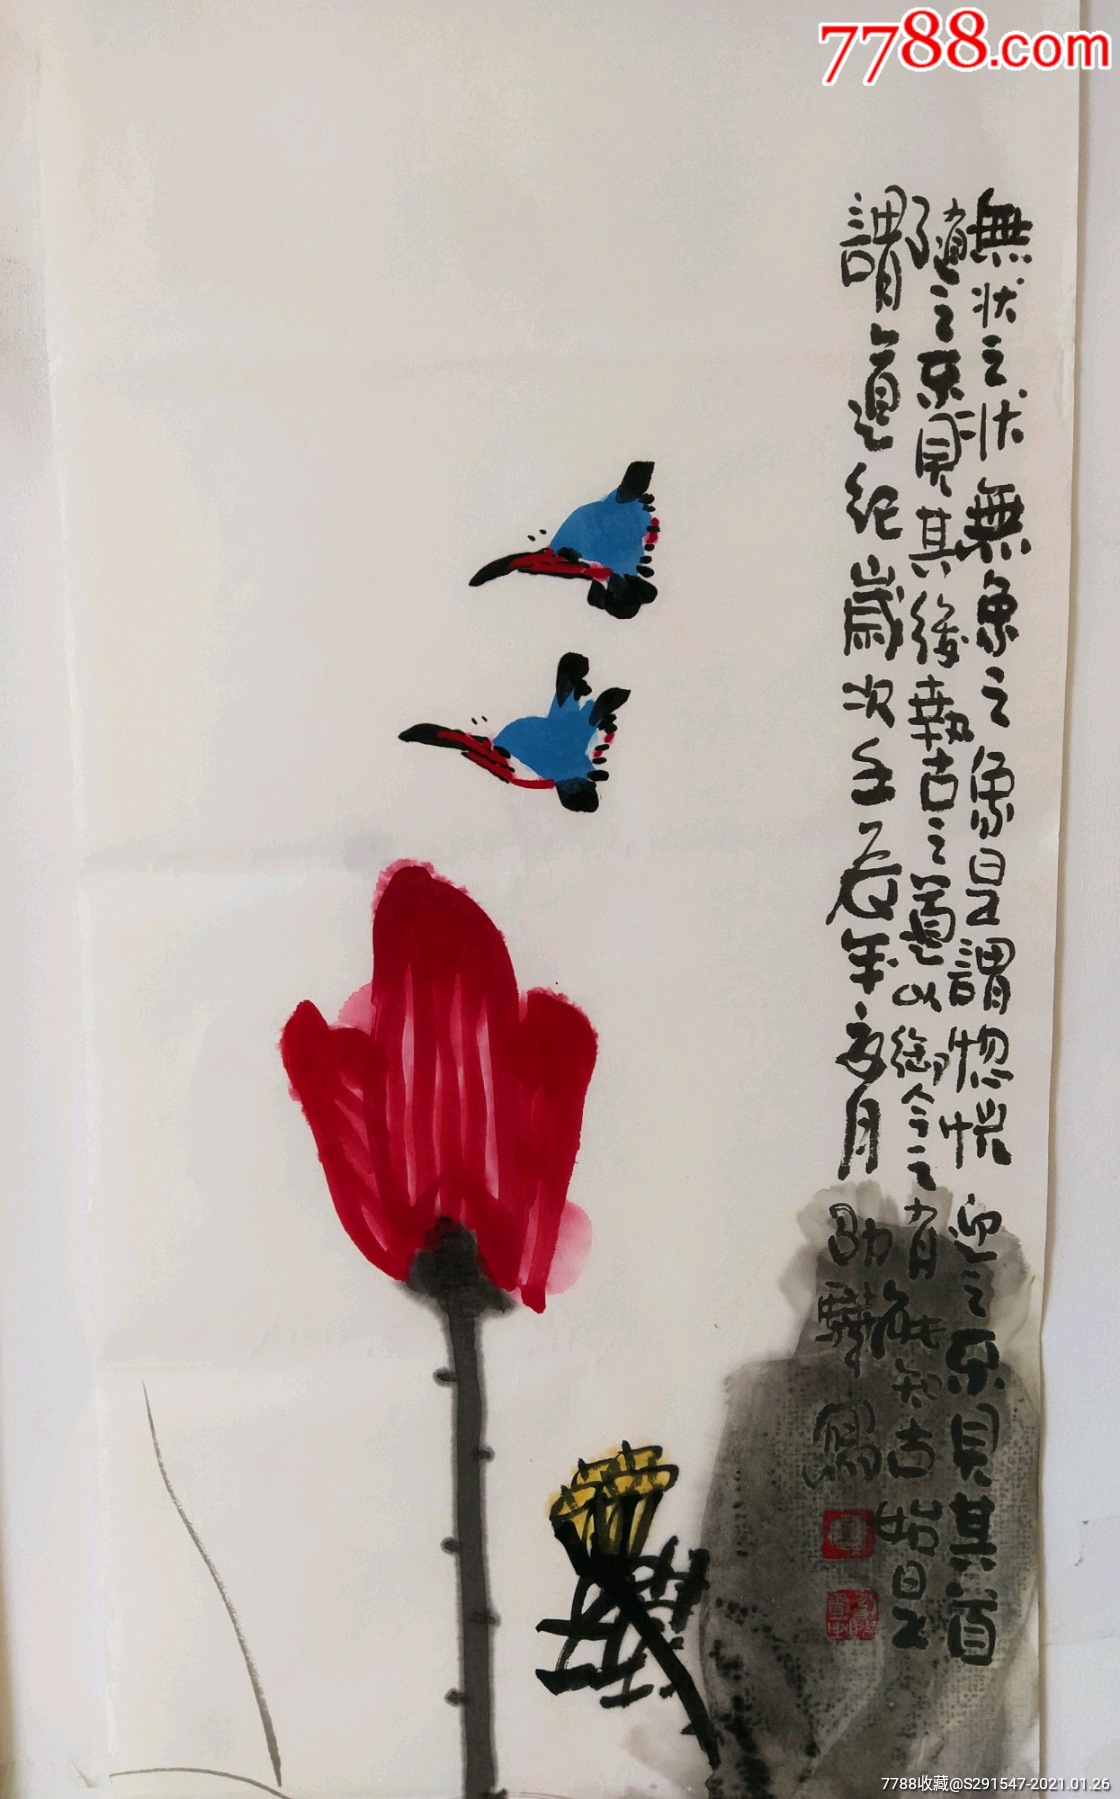 7788.com
無狀之狀無象之象是謂惚恍迎之不見其首
隨之不見其後執古之道以御今之有能知古始是
謂道紀歲次壬辰年月劭驊寫
7788收藏@S291547-2021.01.26